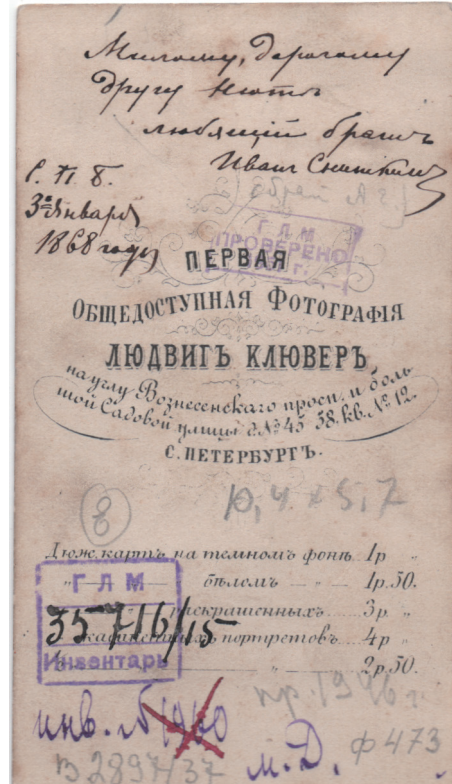 Милому, дорогому
другу Нюте
любящій братъ
Иванъ Сниткинъ
С. П. Б.
3го Января
1868 году
(брат А. Г.)
ГЛМ
ПРОВЕРЕНО
г.
ПЕРВАЯ
ОБЩЕДОСТУПНАЯ ФОТОГРАФІЯ
ЛЮДВИГЪ КЛЮВЕРЪ,
на углу Вознесенскаго просп. и боль
шой Садовой улицы д. № 45 58. кв. № 12.
С. ПЕТЕРБУРГЪ.
8
10,4 x 5,7
Дюж. картъ на темномъ фонѣ 1р „
„ — бѣломъ — „ — 1р. 50.
раскрашенныхъ 3р „
кабинетныхъ портретовъ 4р „
„ 2р. 50.
ГЛМ
35716/15
Инвентарь
пр. 1946 г.
инв. №
В 2897/37
м. Д.
ф 473